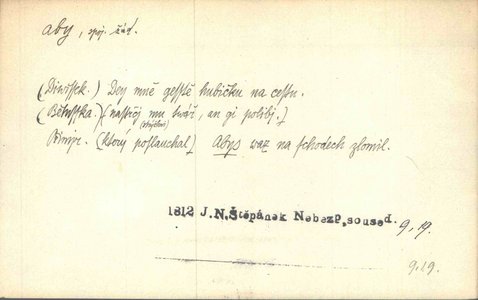 aby, spoj. žád.
(Diwissek.) Dey mně gesstě hubičku na cestu.
(Bětusska.) (nastrčj mu twář, an gi polibj.)
(ktorý poslauchal) Abys waz na schodech zlomil.
1812 J.N.Štěpánek Nebezp, soused. 9,19.
9.19.